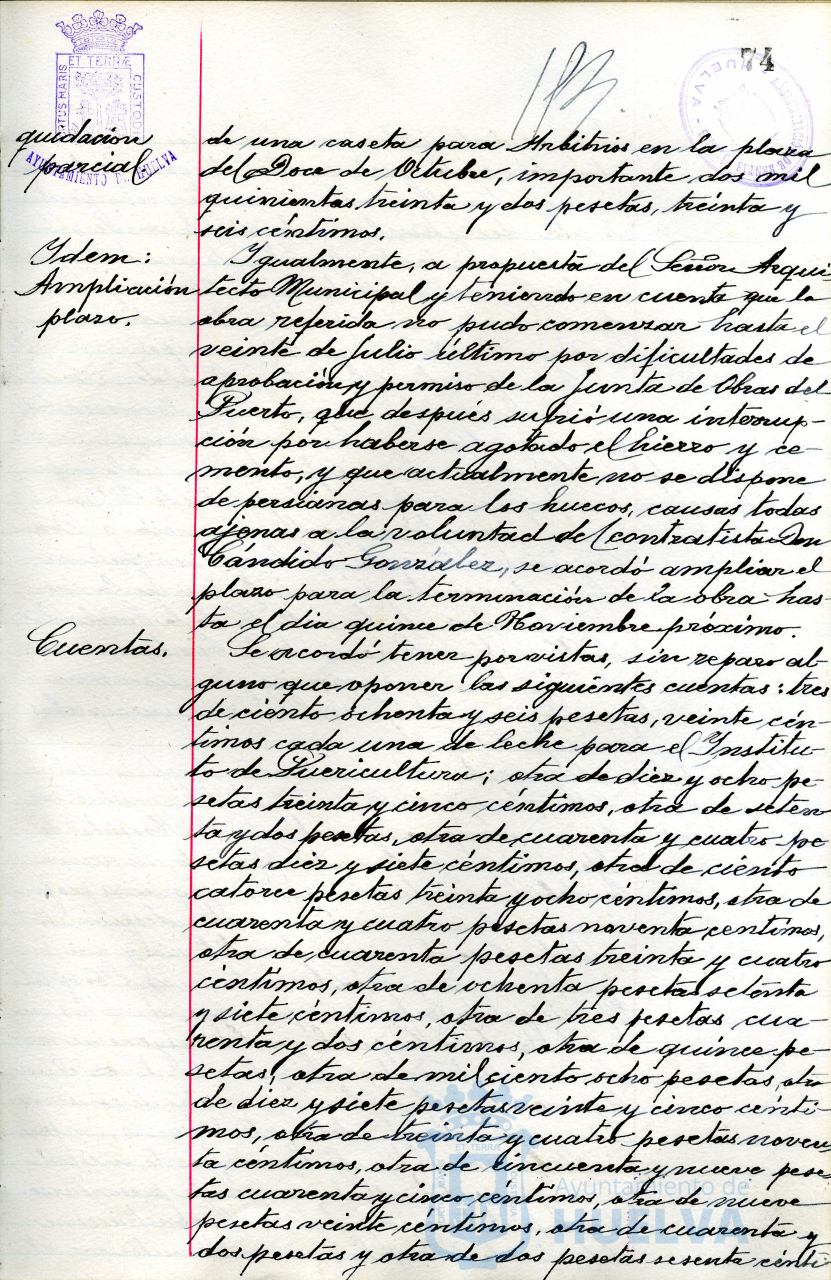 74
ET TERRÆ
PORTUS MARIS
CUSTODIA
AYUNTAMIENTO DE HUELVA
HUELVA
quidacion
parcial
de una caseta para Arbitrios en la plaza
del Doce de Octubre, importante dos mil
quinientas treinta y dos pesetas, treinta y
seis céntimos.
Idem:
Ampliación
plazo.
Igualmente, a propuesta del Señor Arqui-
tecto Municipal y teniendo en cuenta que la
obra referida no pudo comenzar hasta el
veinte de Julio último por dificultades de
aprobación y permiso de la Junta de Obras del
Puerto, que después sufrió una interrup-
ción por haberse agotado el hierro y ce-
mento, y que actualmente no se dispone
de persianas para los huecos, causas todas
ajenas a la voluntad del contratista Don
Cándido González, se acordó ampliar el
plazo para la terminación de la obra has-
ta el dia quince de Noviembre próximo.
Cuentas.
Se acordó tener por vistas, sin reparo al-
guno que oponer las siguientes cuentas: tres
de ciento ochenta y seis pesetas, veinte cén-
timos cada una de leche para el Institu-
to de Puericultura; otra de diez y ocho pe-
setas treinta y cinco céntimos, otra de seten
ta y dos pesetas, otra de cuarenta y cuatro pe
setas diez y siete céntimos, otra de ciento
catorce pesetas treinta y ocho céntimos, otra de
cuarenta y cuatro pesetas noventa centimos,
otra de cuarenta pesetas treinta y cuatro
céntimos, otra de ochenta pesetas setenta
y siete céntimos, otra de tres pesetas cua-
renta y dos céntimos, otra de quince pe-
setas, otra de mil ciento ocho pesetas, otra
de diez y siete pesetas veinte y cinco cénti-
mos, otra de treinta y cuatro pesetas noven
ta céntimos, otra de cincuenta y nueve pese
tas cuarenta y cinco centimos, otra de nueve
pesetas veinte céntimos, otra de cuarenta y
dos pesetas y otra de dos pesetas sesenta cénti
Ayuntamiento de
HUELVA